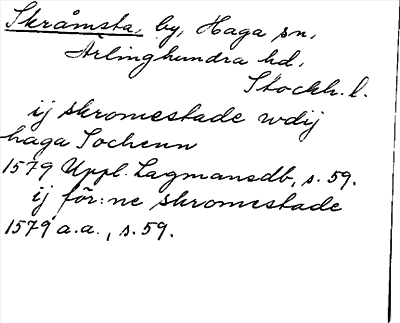 Skråmsta, by, Haga sn,
Ärlinghundra hd,
Stockh. l.
ij skromestade wdij
haga Sochenn
1579 Uppl. Lagmansdb, s. 59.
ij för:ne skromestade
1579 a.a., s. 59.